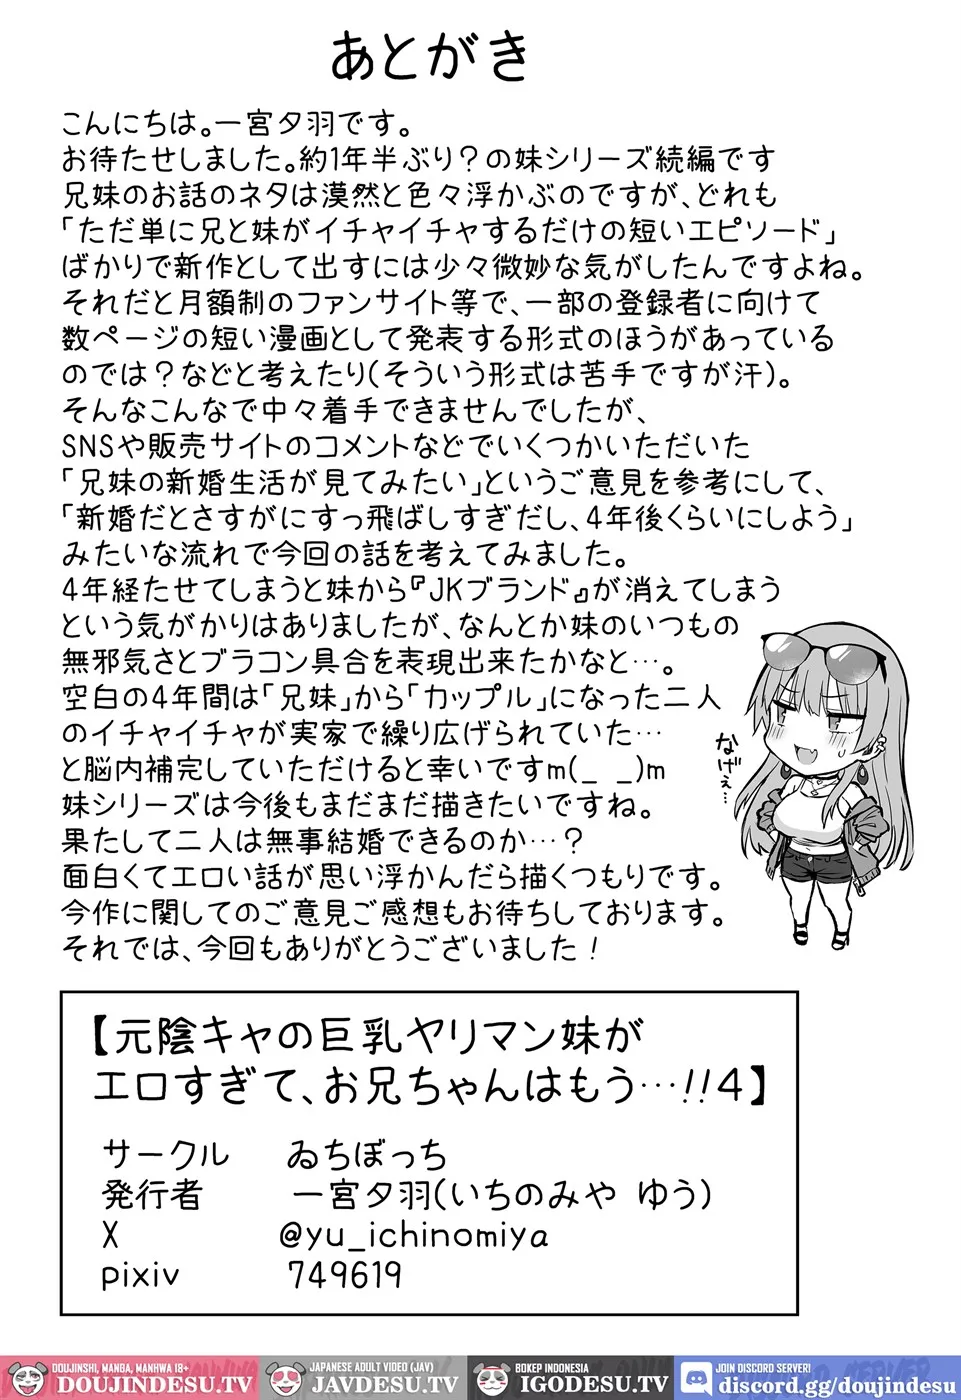 あとがき
こんにちは。一宮夕羽です。
お待たせしました。約1年半ぶり？の妹シリーズ続編です
兄妹のお話のネタは漠然と色々浮かぶのですが、どれも
「ただ単に兄と妹がイチャイチャするだけの短いエピソード」
ばかりで新作として出すには少々微妙な気がしたんですよね。
それだと月額制のファンサイト等で、一部の登録者に向けて
数ページの短い漫画として発表する形式のほうがあっている
のでは？などと考えたり(そういう形式は苦手ですが汗)。
そんなこんなで中々着手できませんでしたが、
SNSや販売サイトのコメントなどでいくつかいただいた
「兄妹の新婚生活が見てみたい」というご意見を参考にして、
「新婚だとさすがにすっ飛ばしすぎだし、4年後くらいにしよう」
みたいな流れで今回の話を考えてみました。
4年経たせてしまうと妹から『JKブランド』が消えてしまう
という気がかりはありましたが、なんとか妹のいつもの
無邪気さとブラコン具合を表現出来たかなと…。
空白の4年間は「兄妹」から「カップル」になった二人
のイチャイチャが実家で繰り広げられていた…
と脳内補完していただけると幸いですm(_ _)m
妹シリーズは今後もまだまだ描きたいですね。
果たして二人は無事結婚できるのか…？
面白くてエロい話が思い浮かんだら描くつもりです。
今作に関してのご意見ご感想もお待ちしております。
それでは、今回もありがとうございました！
なげぇ…
【元陰キャの巨乳ヤリマン妹が
エロすぎて、お兄ちゃんはもう…!!4】
サークル ゐちぼっち
発行者 一宮夕羽(いちのみや ゆう)
X @yu_ichinomiya
pixiv 749619
DOUJINSHI, MANGA, MANHWA 18+
DOUJINDESU.TV
JAPANESE ADULT VIDEO (JAV)
JAVDESU.TV
BOKEP INDONESIA
IGODESU.TV
JOIN DISCORD SERVER!
discord.gg/doujindesu